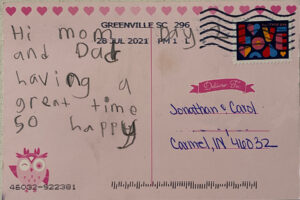 GREENVILLE SC 296
28 JUL 2021 PM 1
Hi mom
and Dad
having a
great time
so happy
Deliver To:
Jonathan & Carol
Carmel, IN 46032
46032-922381